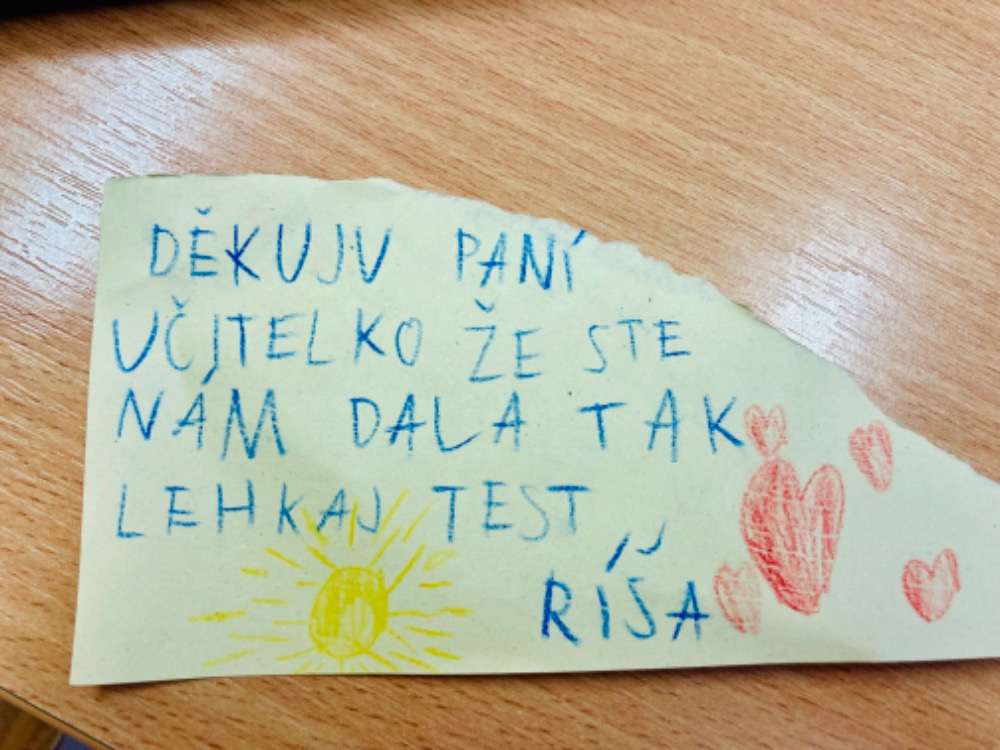 DĚKUJU PANÍ
UČITELKO ŽE STE
NÁM DALA TAK
LEHKAJ TEST
RÍŠA